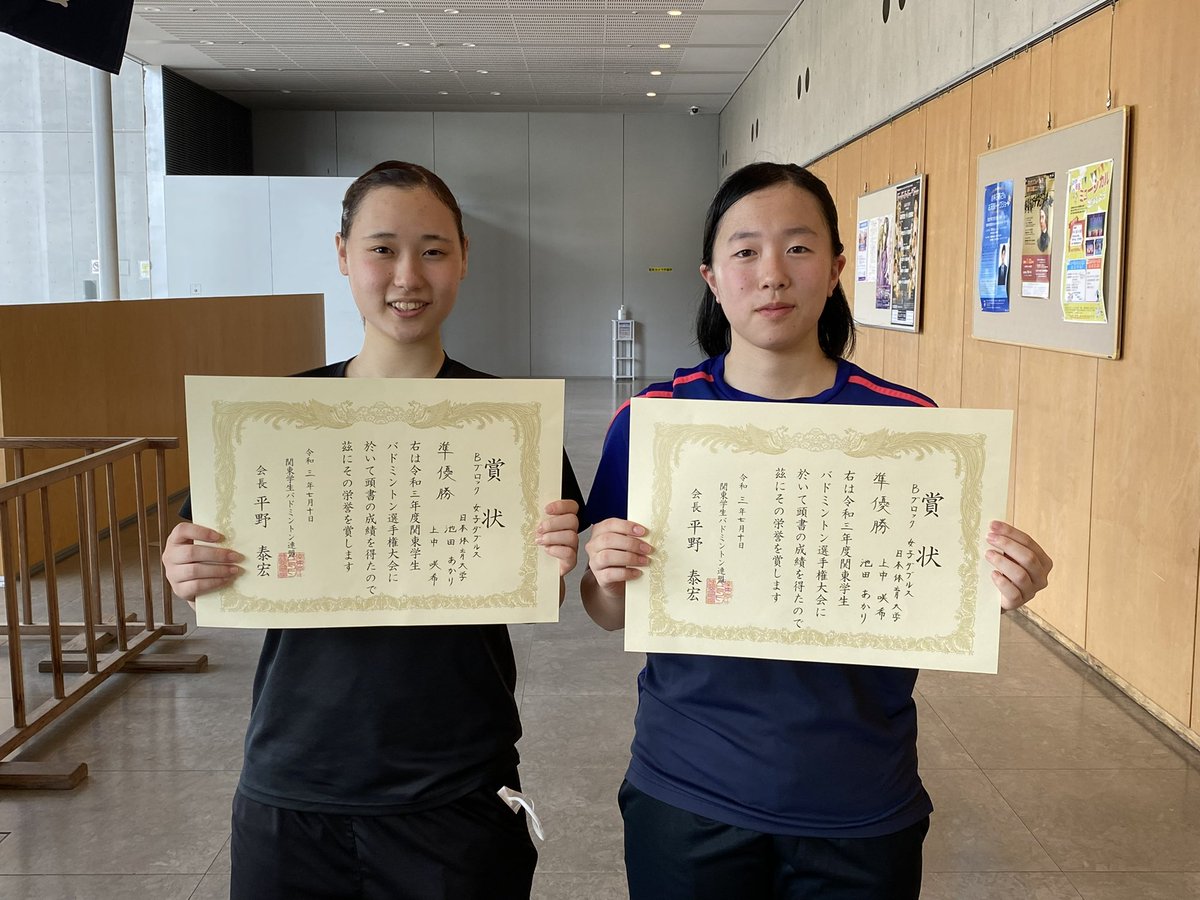 賞状
Bブロック 女子ダブルス
準優勝
日本体育大学
池田 あかり
上中 咲希
右は令和三年度関東学生
バドミントン選手権大会に
於いて頭書の成績を得たので
茲にその栄誉を賞します
令和三年七月十日
関東学生バドミントン連盟
会長 平野 泰宏
賞状
Bブロック 女子ダブルス
準優勝
日本体育大学
上中 咲希
池田 あかり
右は令和三年度関東学生
バドミントン選手権大会に
於いて頭書の成績を得たので
茲にその栄誉を賞します
令和三年七月十日
関東学生バドミントン連盟
会長 平野 泰宏
ミュージカル